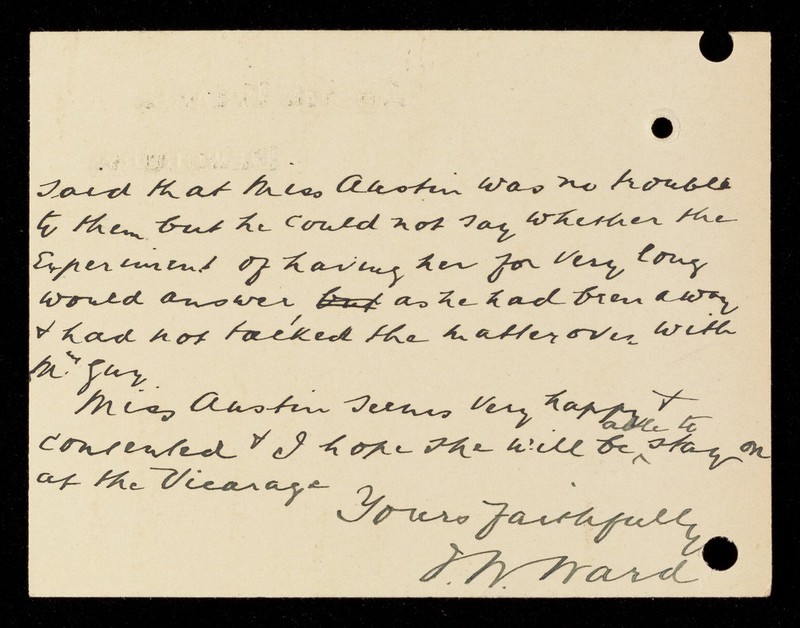 said that Miss Austin was no trouble
to them but he could not say whether the
Experiment of having her for very long
would answer, but as he had been away
& had not talked the matter over with
Mrs Guy.
Miss Austin seems very happy &
contented & I hope she will be able to stay on
at the Vicarage
Yours faithfully
J. W. Ward